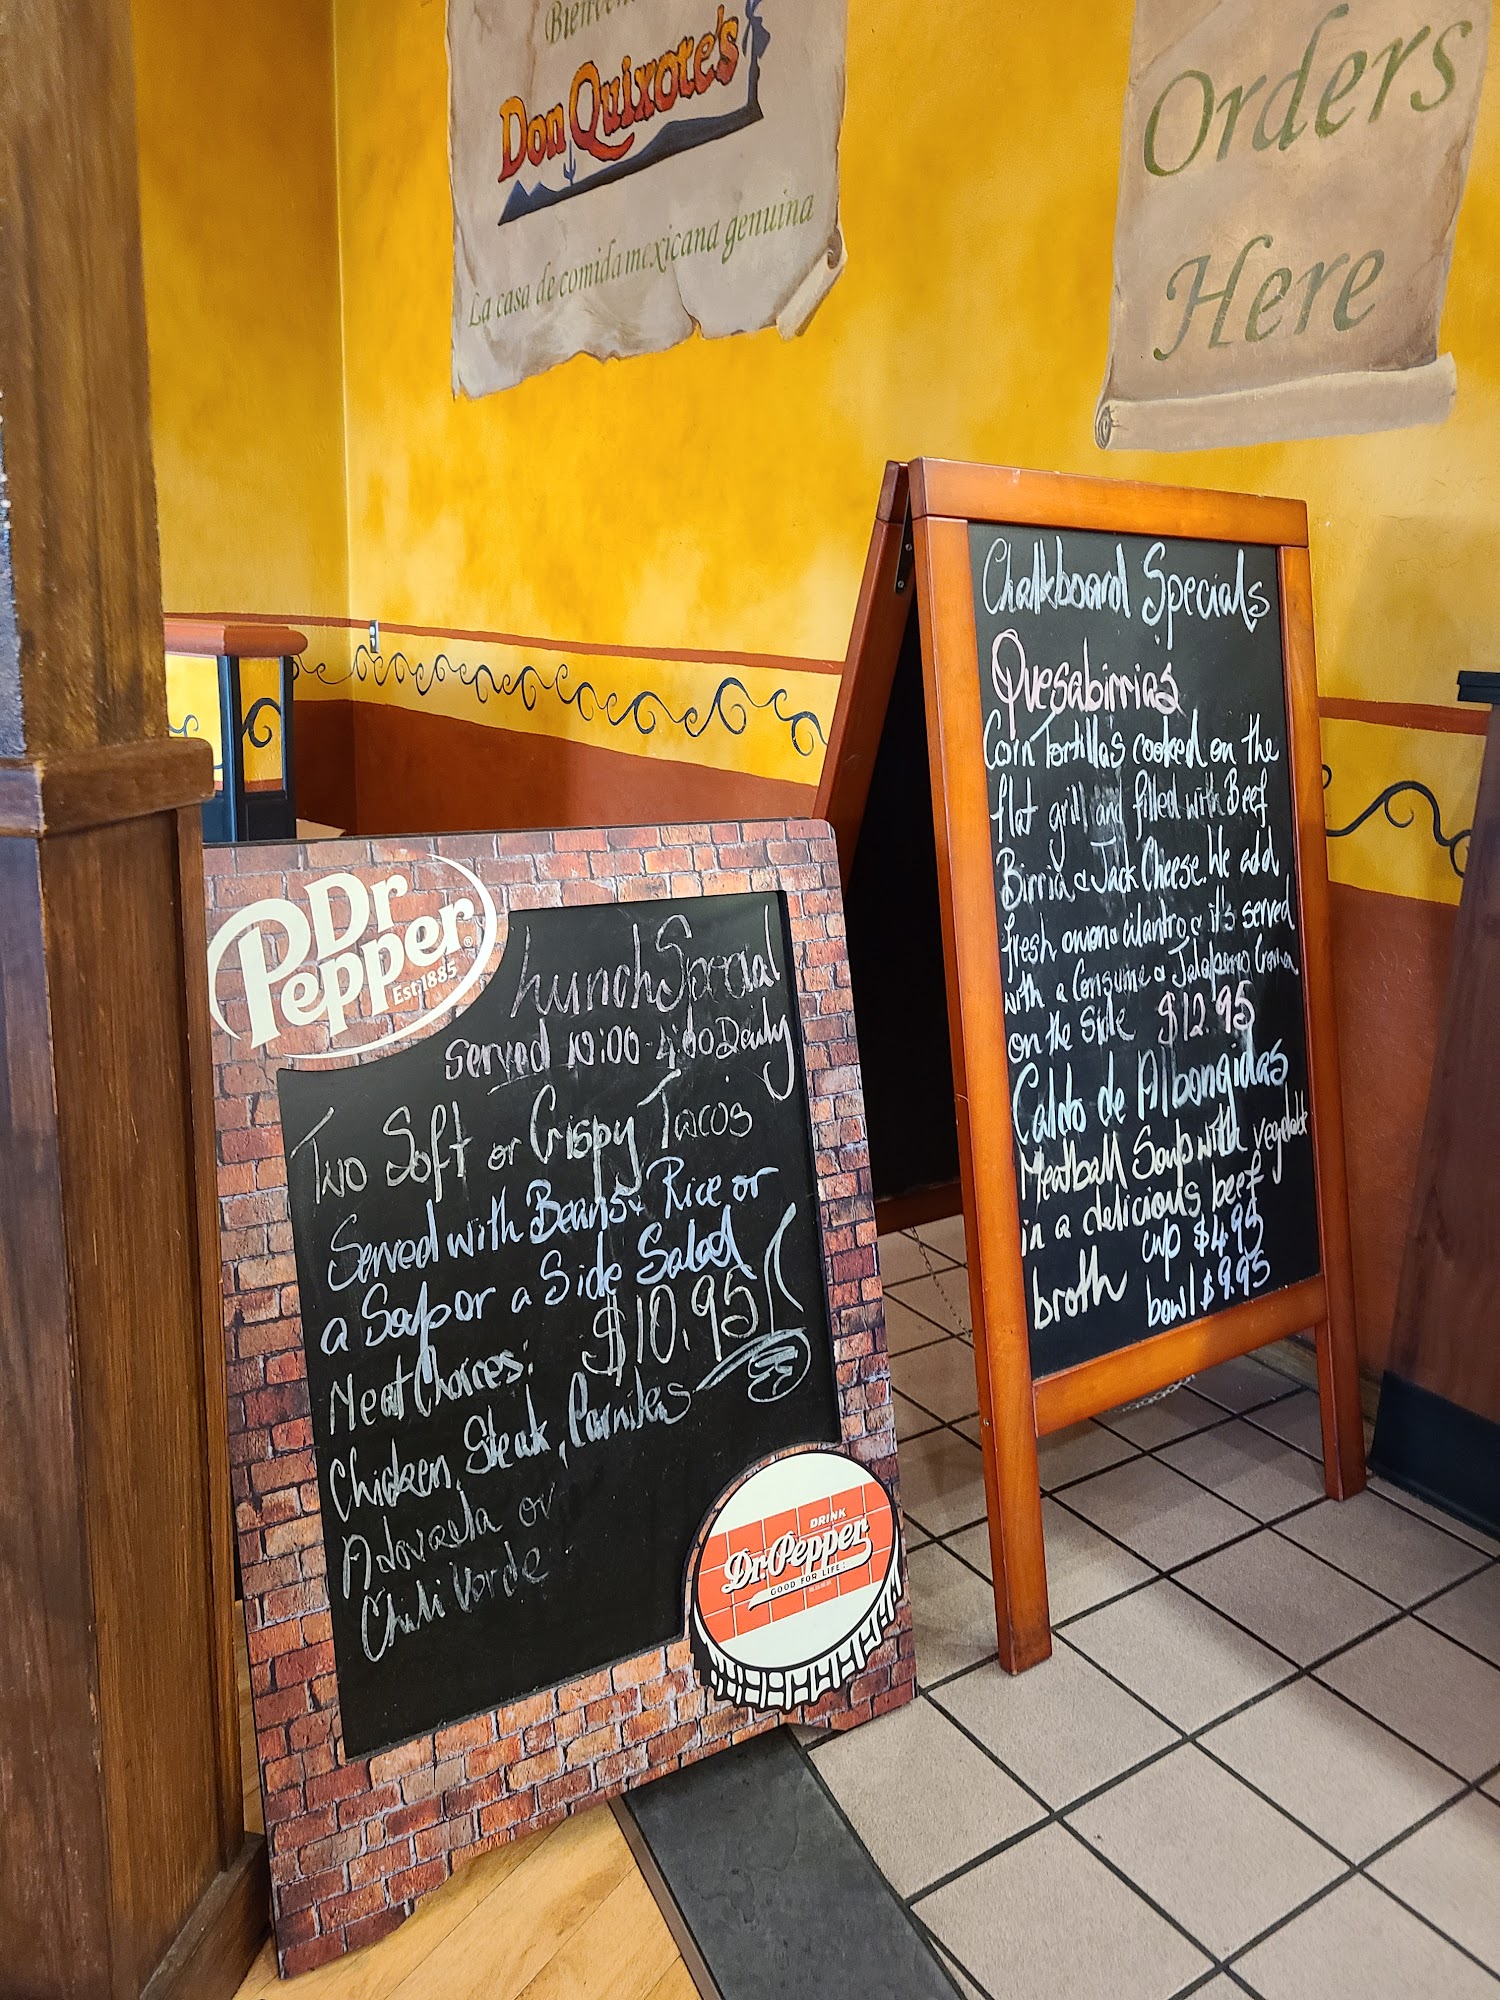 Don Quixote's
La casa de comida mexicana genuina
Orders
Here
Chalkboard Specials
Quesabirrias
Corn Tortillas cooked on the
flat grill and filled with Beef
Birria & Jack Cheese. We add
fresh onion cilantro & it's served
with a Consume & Jalapeno Crema
on the side $12.95
Caldo de Albongidas
Meatball Soup with vegetable
in a delicious beef
broth cup $4.95
bowl $9.95
Dr
Pepper
Est. 1885
Lunch Special
Served 10:00-4:00 Daily
Two Soft or Crispy Tacos
Served with Beans & Rice or
a Soup or a Side Salad
$10.95
Meat Choices:
Chicken, Steak, Carnitas
Adovada or
Chili Verde
DRINK
Dr. Pepper
GOOD FOR LIFE!